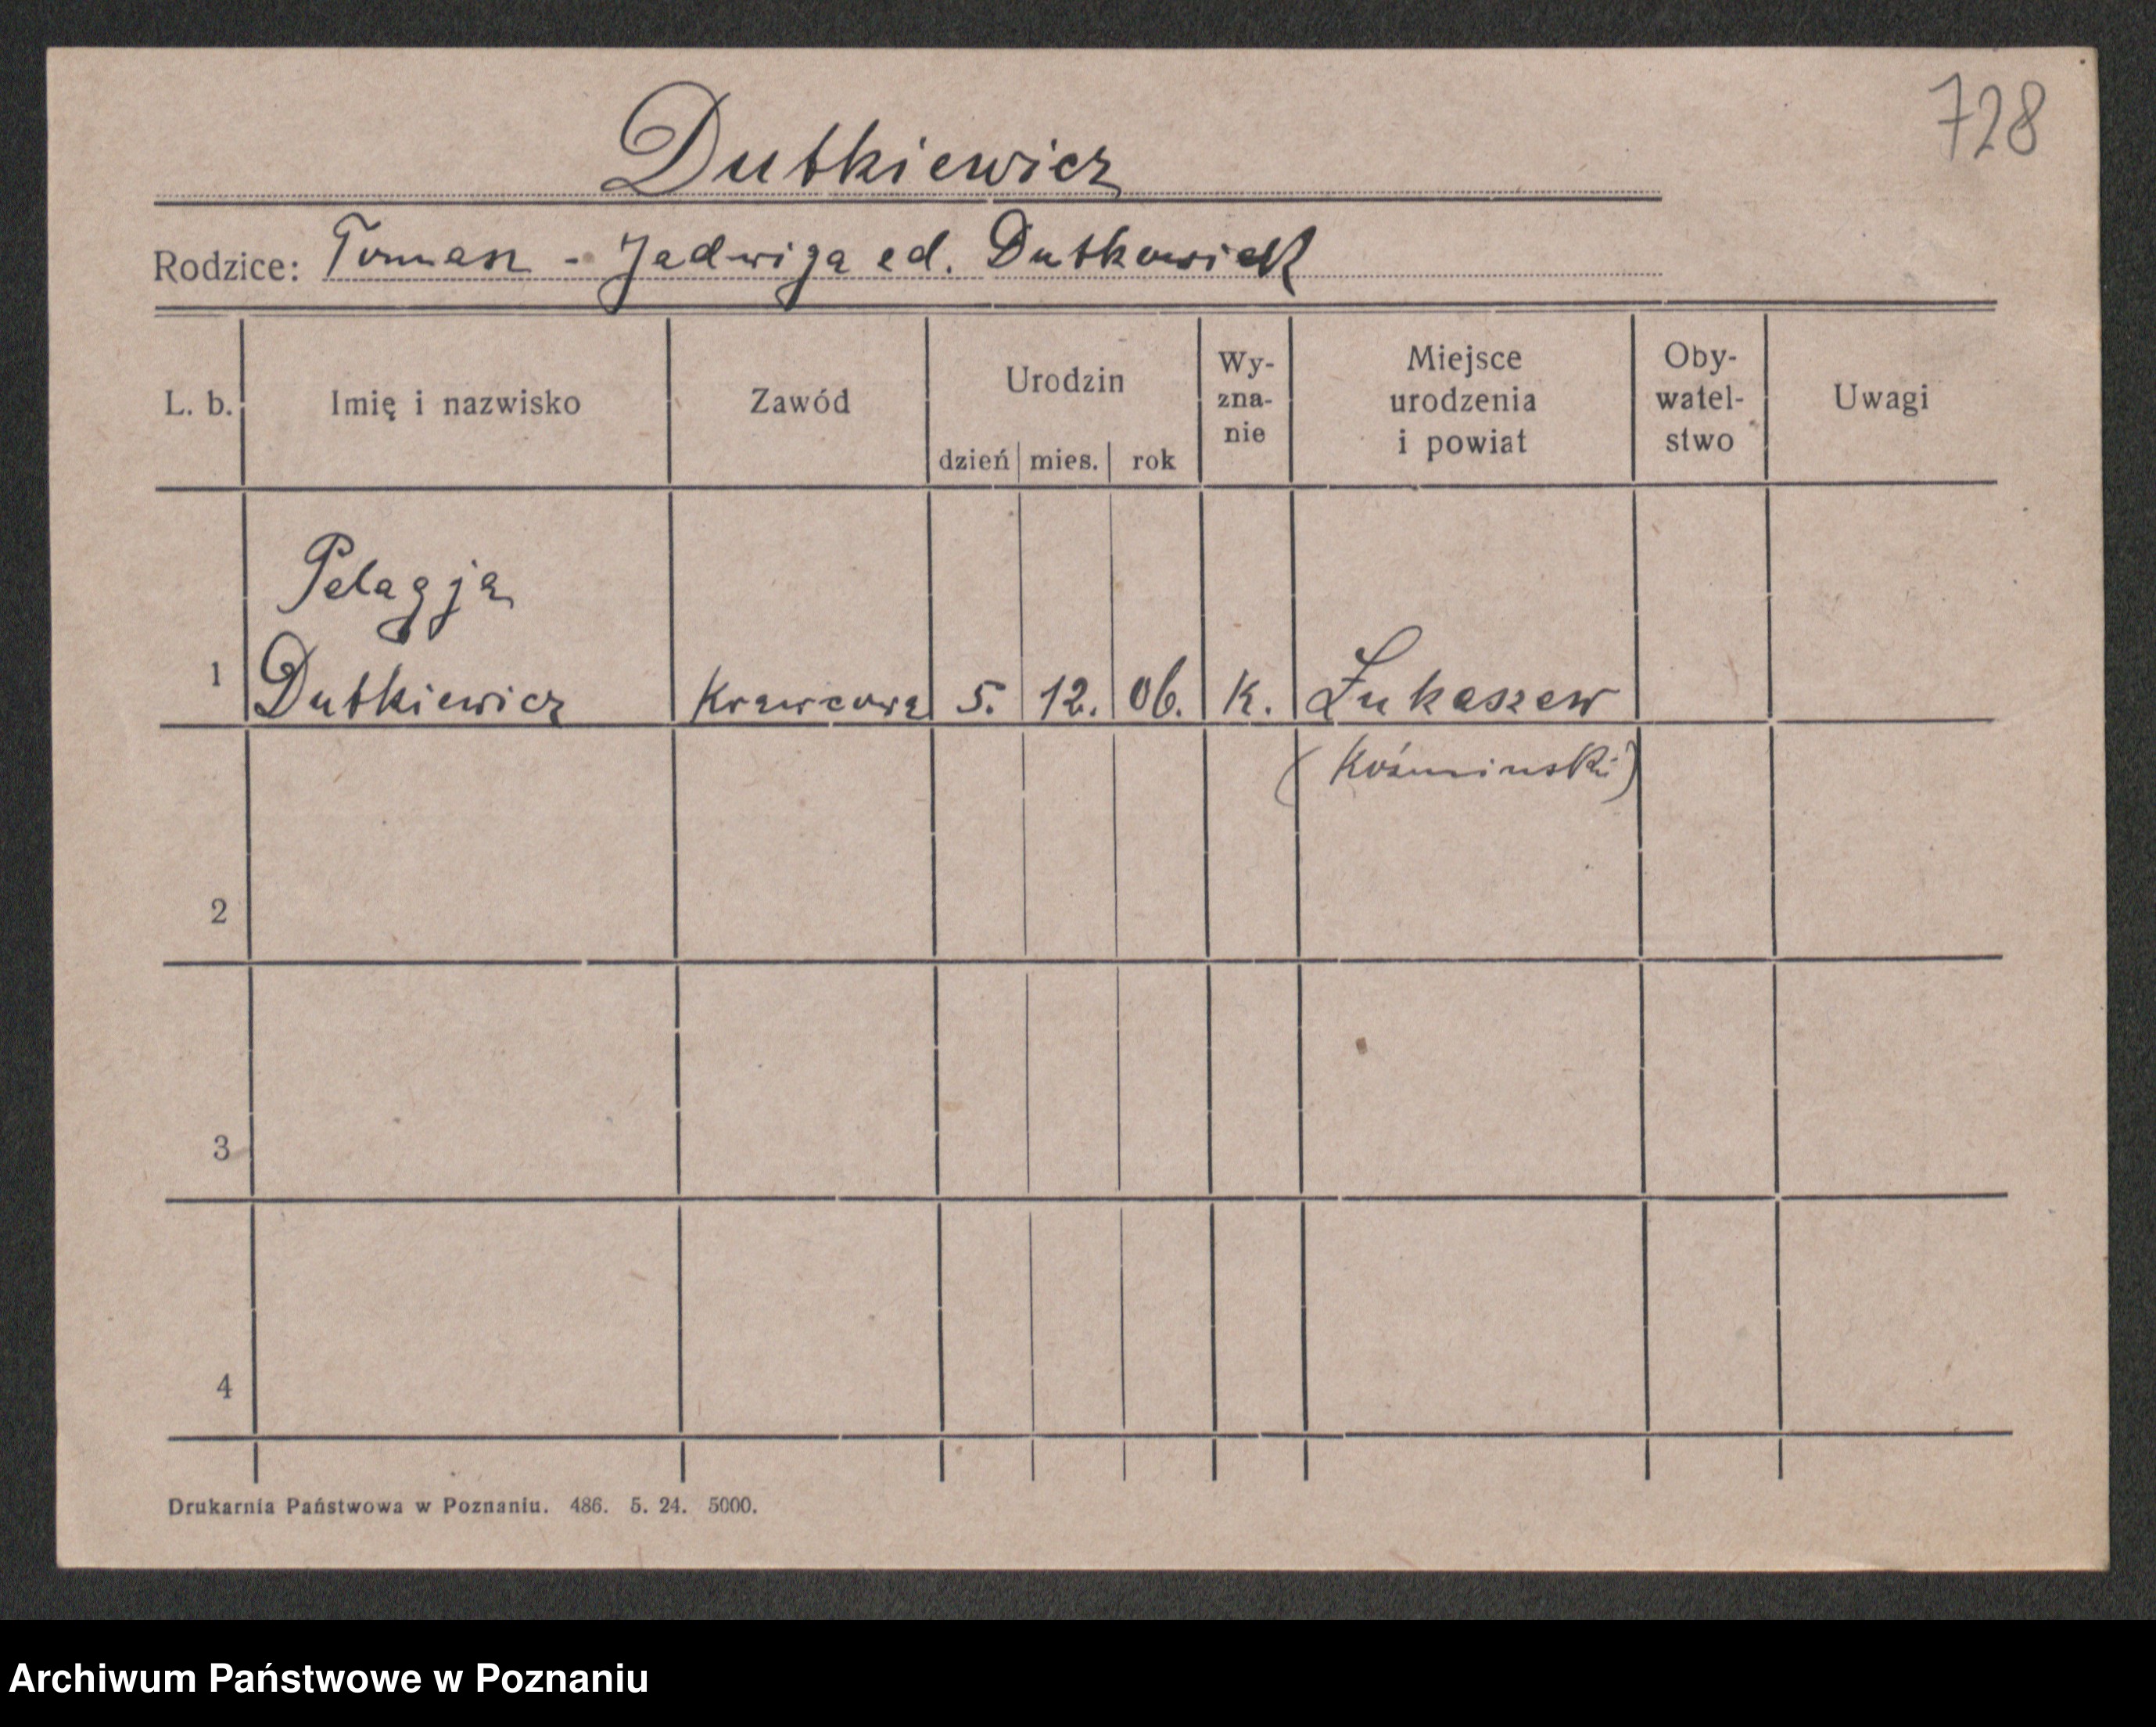 728
Dutkiewicz
Rodzice: Tomasz - Jadwiga ed. Dutkowiak
L. b. Imię i nazwisko Zawód Urodzin dzień mies. rok Wy-zna-nie Miejsce urodzenia i powiat Oby-watel-stwo Uwagi
Pelagja
1 Dutkiewicz Krawcowa 5. 12. 06. K. Łukaszew
(Koźmiński)
2
3
4
Drukarnia Państwowa w Poznaniu. 486. 5. 24. 5000.
Archiwum Państwowe w Poznaniu